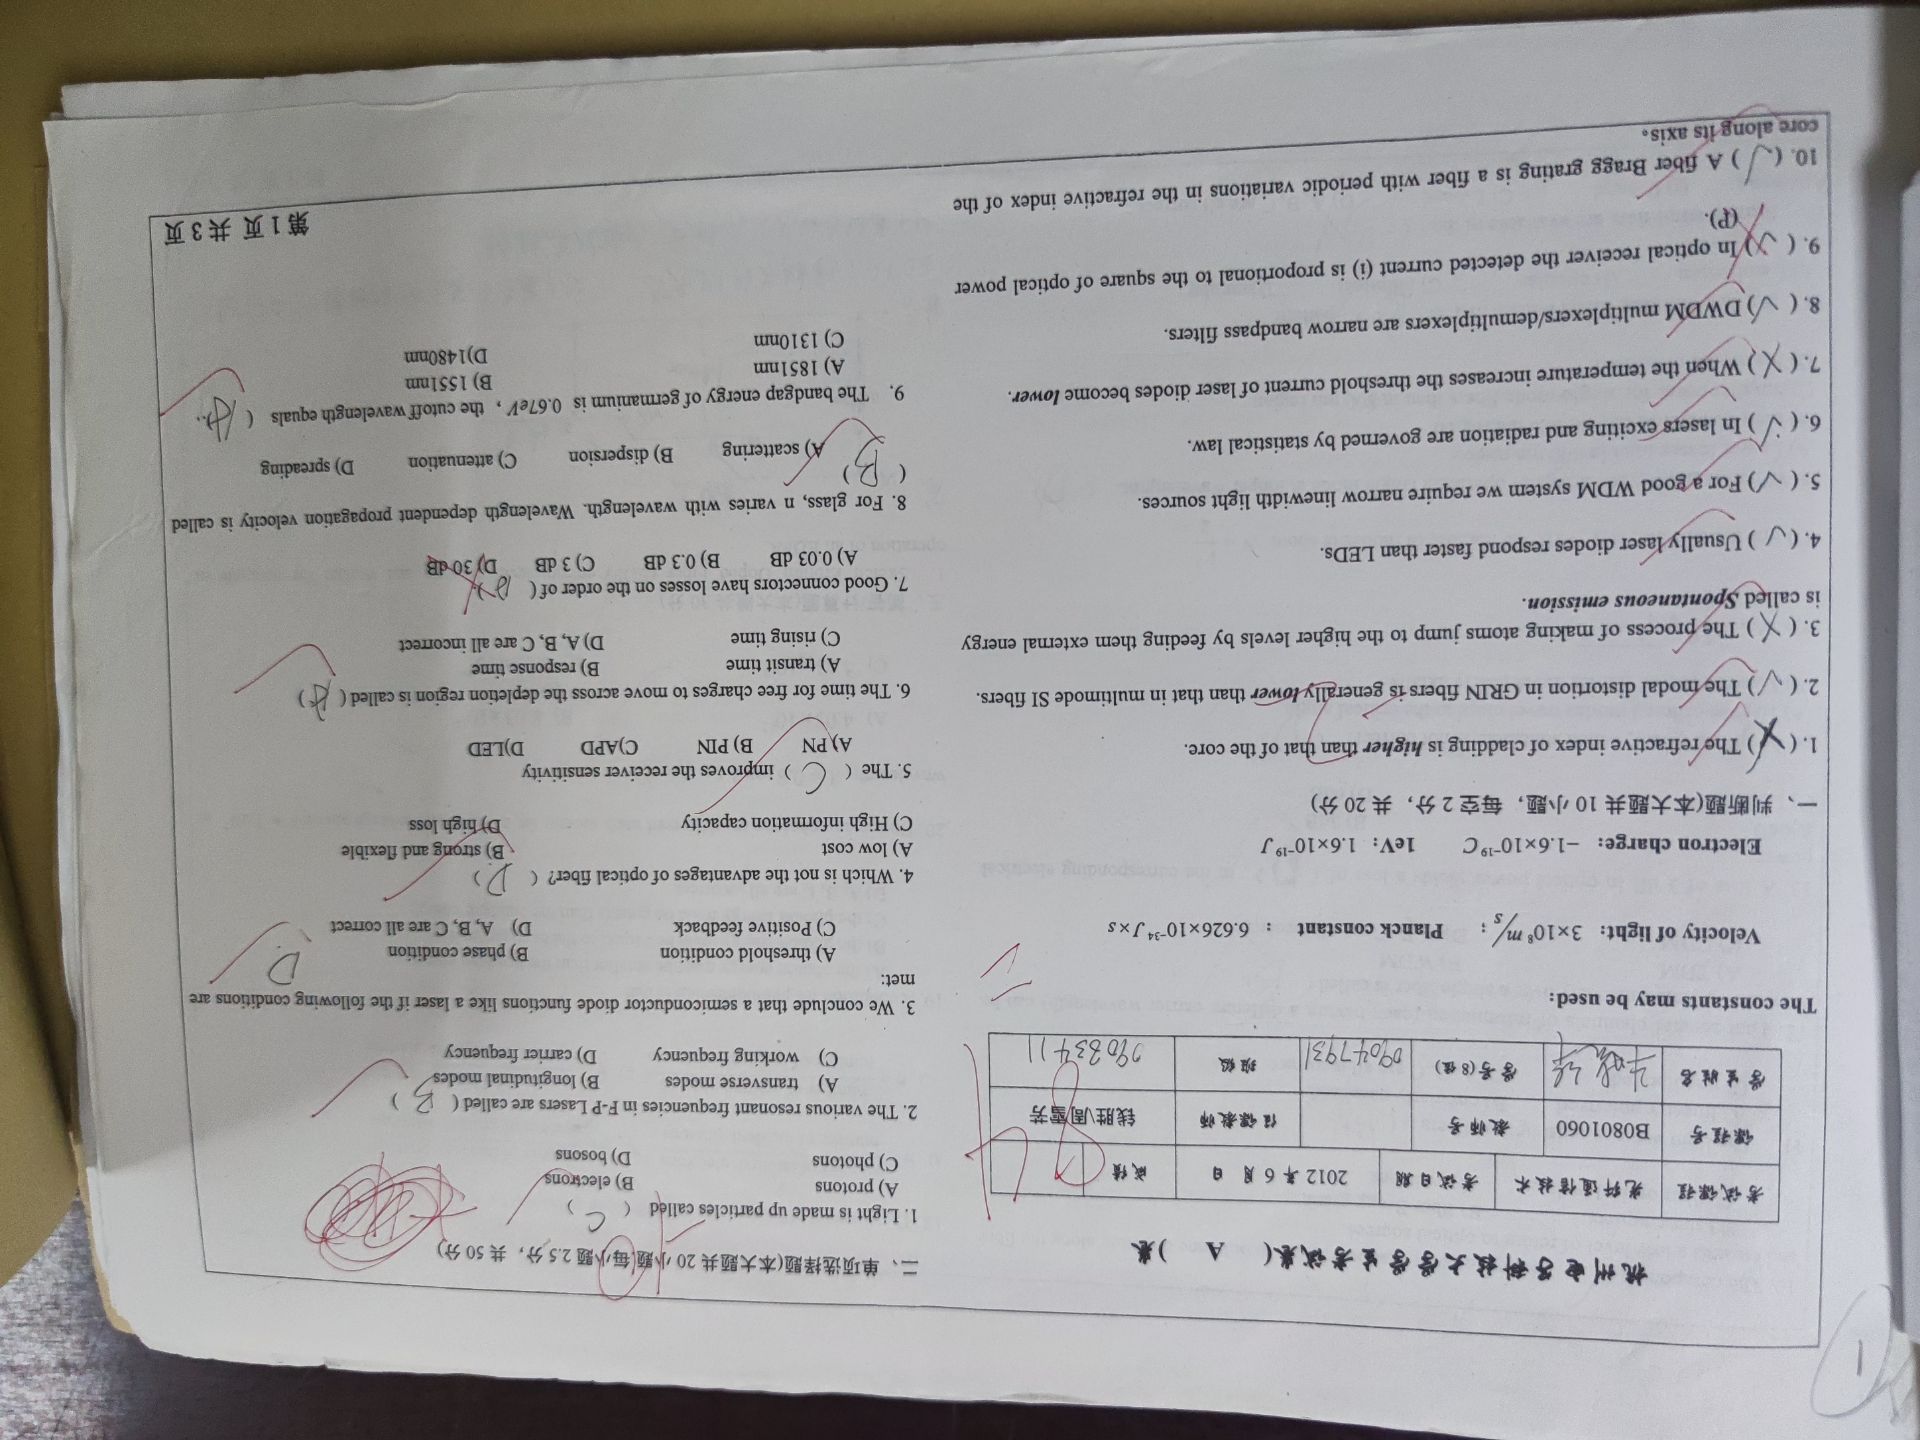 1
杭州电子科技大学学生考试卷( A )卷
考试课程 光纤通信技术 考试日期 2012 年 6 月 日 成绩 84
课程号 B0801060 教师号 任课教师 钱胜\周雪芳
学生姓名 学号(8位) 09047931 班级 09083411
The constants may be used:
Velocity of light: 3×10⁸ m/s ; Planck constant : 6.626×10⁻³⁴ J×s
Electron charge: −1.6×10⁻¹⁹ C 1eV: 1.6×10⁻¹⁹ J
一、判断题(本大题共 10 小题，每空 2 分，共 20 分)
1. (X) The refractive index of cladding is higher than that of the core.
2. (√) The modal distortion in GRIN fibers is generally lower than that in multimode SI fibers.
3. (X) The process of making atoms jump to the higher levels by feeding them external energy
is called Spontaneous emission.
4. (√) Usually laser diodes respond faster than LEDs.
5. (√) For a good WDM system we require narrow linewidth light sources.
6. (√) In lasers exciting and radiation are governed by statistical law.
7. (X) When the temperature increases the threshold current of laser diodes become lower.
8. (√) DWDM multiplexers/demultiplexers are narrow bandpass filters.
9. (√) In optical receiver the detected current (i) is proportional to the square of optical power
(P).
10. (√) A fiber Bragg grating is a fiber with periodic variations in the refractive index of the
core along its axis。
二、单项选择题(本大题共 20 小题,每小题 2.5 分，共 50 分)
1. Light is made up particles called ( C )
A) protons B) electrons
C) photons D) bosons
2. The various resonant frequencies in F-P Lasers are called ( B )
A) transverse modes B) longitudinal modes
C) working frequency D) carrier frequency
3. We conclude that a semiconductor diode functions like a laser if the following conditions are
met: D
A) threshold condition B) phase condition
C) Positive feedback D) A, B, C are all correct
4. Which is not the advantages of optical fiber? ( D )
A) low cost B) strong and flexible
C) High information capacity D) high loss
5. The ( C ) improves the receiver sensitivity
A) PN B) PIN C)APD D)LED
6. The time for free charges to move across the depletion region is called ( A )
A) transit time B) response time
C) rising time D) A, B, C are all incorrect
7. Good connectors have losses on the order of ( A ).
A) 0.03 dB B) 0.3 dB C) 3 dB D) 30 dB
8. For glass, n varies with wavelength. Wavelength dependent propagation velocity is called
( B )
A) scattering B) dispersion C) attenuation D) spreading
9. The bandgap energy of germanium is 0.67eV , the cutoff wavelength equals ( A )..
A) 1851nm B) 1551nm
C) 1310nm D)1480nm
第 1 页 共 3 页